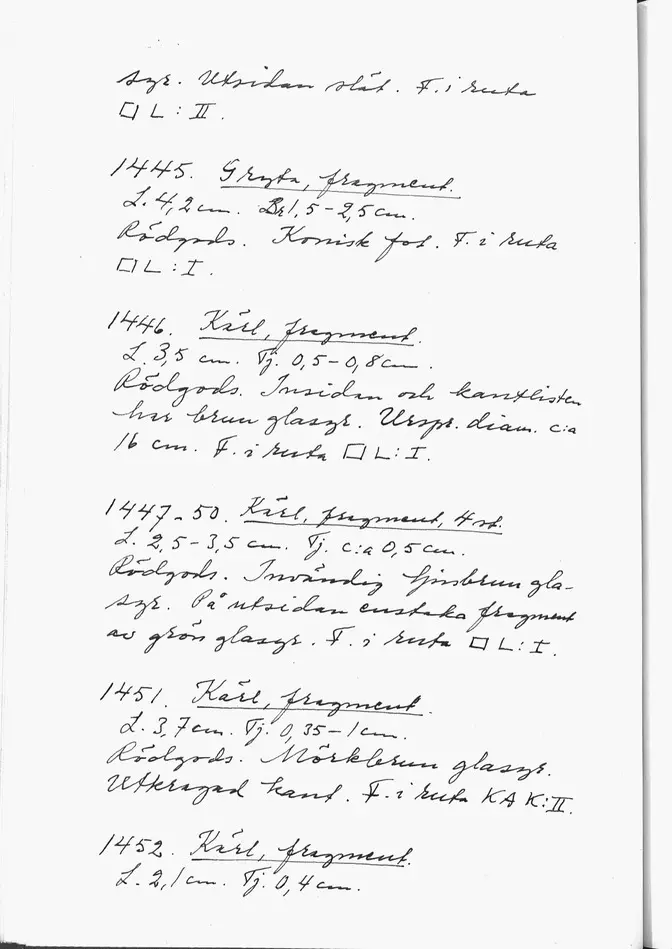 syr. Utsidan slät. F. i ruta
□ L : II.
1445. Gryta, fragment.
L. 4,2 cm. Br 1,5-2,5 cm.
Rödgods. Konisk fot. F. i ruta
□ L : I.
1446. Kärl, fragment.
L. 3,5 cm. Tj. 0,5-0,8 cm.
Rödgods. Insidan och kantlisten
har brun glasyr. Urspr. diam. c:a
16 cm. F. i ruta □ L: I.
1447-50. Kärl, fragment, 4 st.
L. 2,5-3,5 cm. Tj. c:a 0,5 cm.
Rödgods. Invändig ljusbrun gla-
syr. På utsidan enstaka fragment
av grön glasyr. F. i ruta □ L: I.
1451. Kärl, fragment.
L. 3,7 cm. Tj. 0,35-1 cm.
Rödgods. Mörkbrun glasyr.
Utkragad kant. F. i ruta KA K: II.
1452. Kärl, fragment.
L. 2,1 cm. Tj. 0,4 cm.